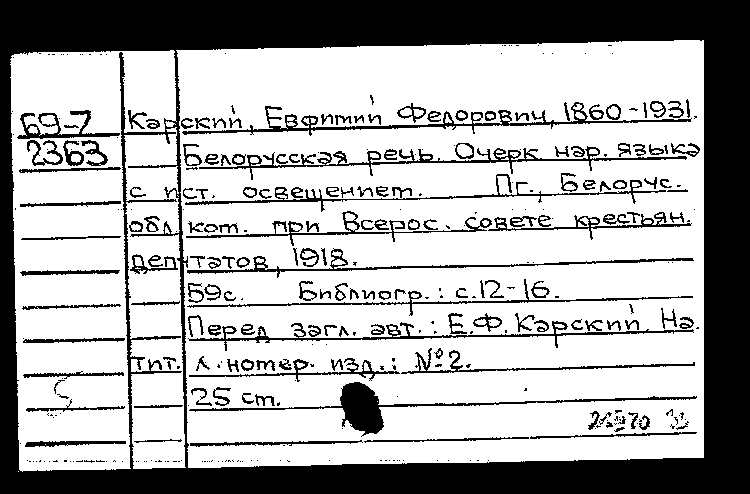 69-7 Карский, Евфимий Федорович, 1860-1931.
2363 Белорусская речь. Очерк нар. языка
с ист. освещением. Пг., Белорус.
обл. ком. при Всерос. совете крестьян.
депутатов, 1918.
59с. Библиогр.: с.12-16.
Перед загл. авт.: Е.Ф. Карский. На
тит. л. номер. изд.: №2.
25 см.